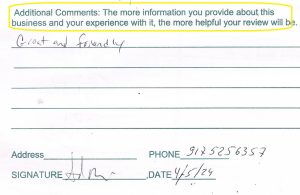 Additional Comments: The more information you provide about this
business and your experience with it, the more helpful your review will be.
Great and friendly
Address PHONE 9175256357
SIGNATURE DATE 4/5/24